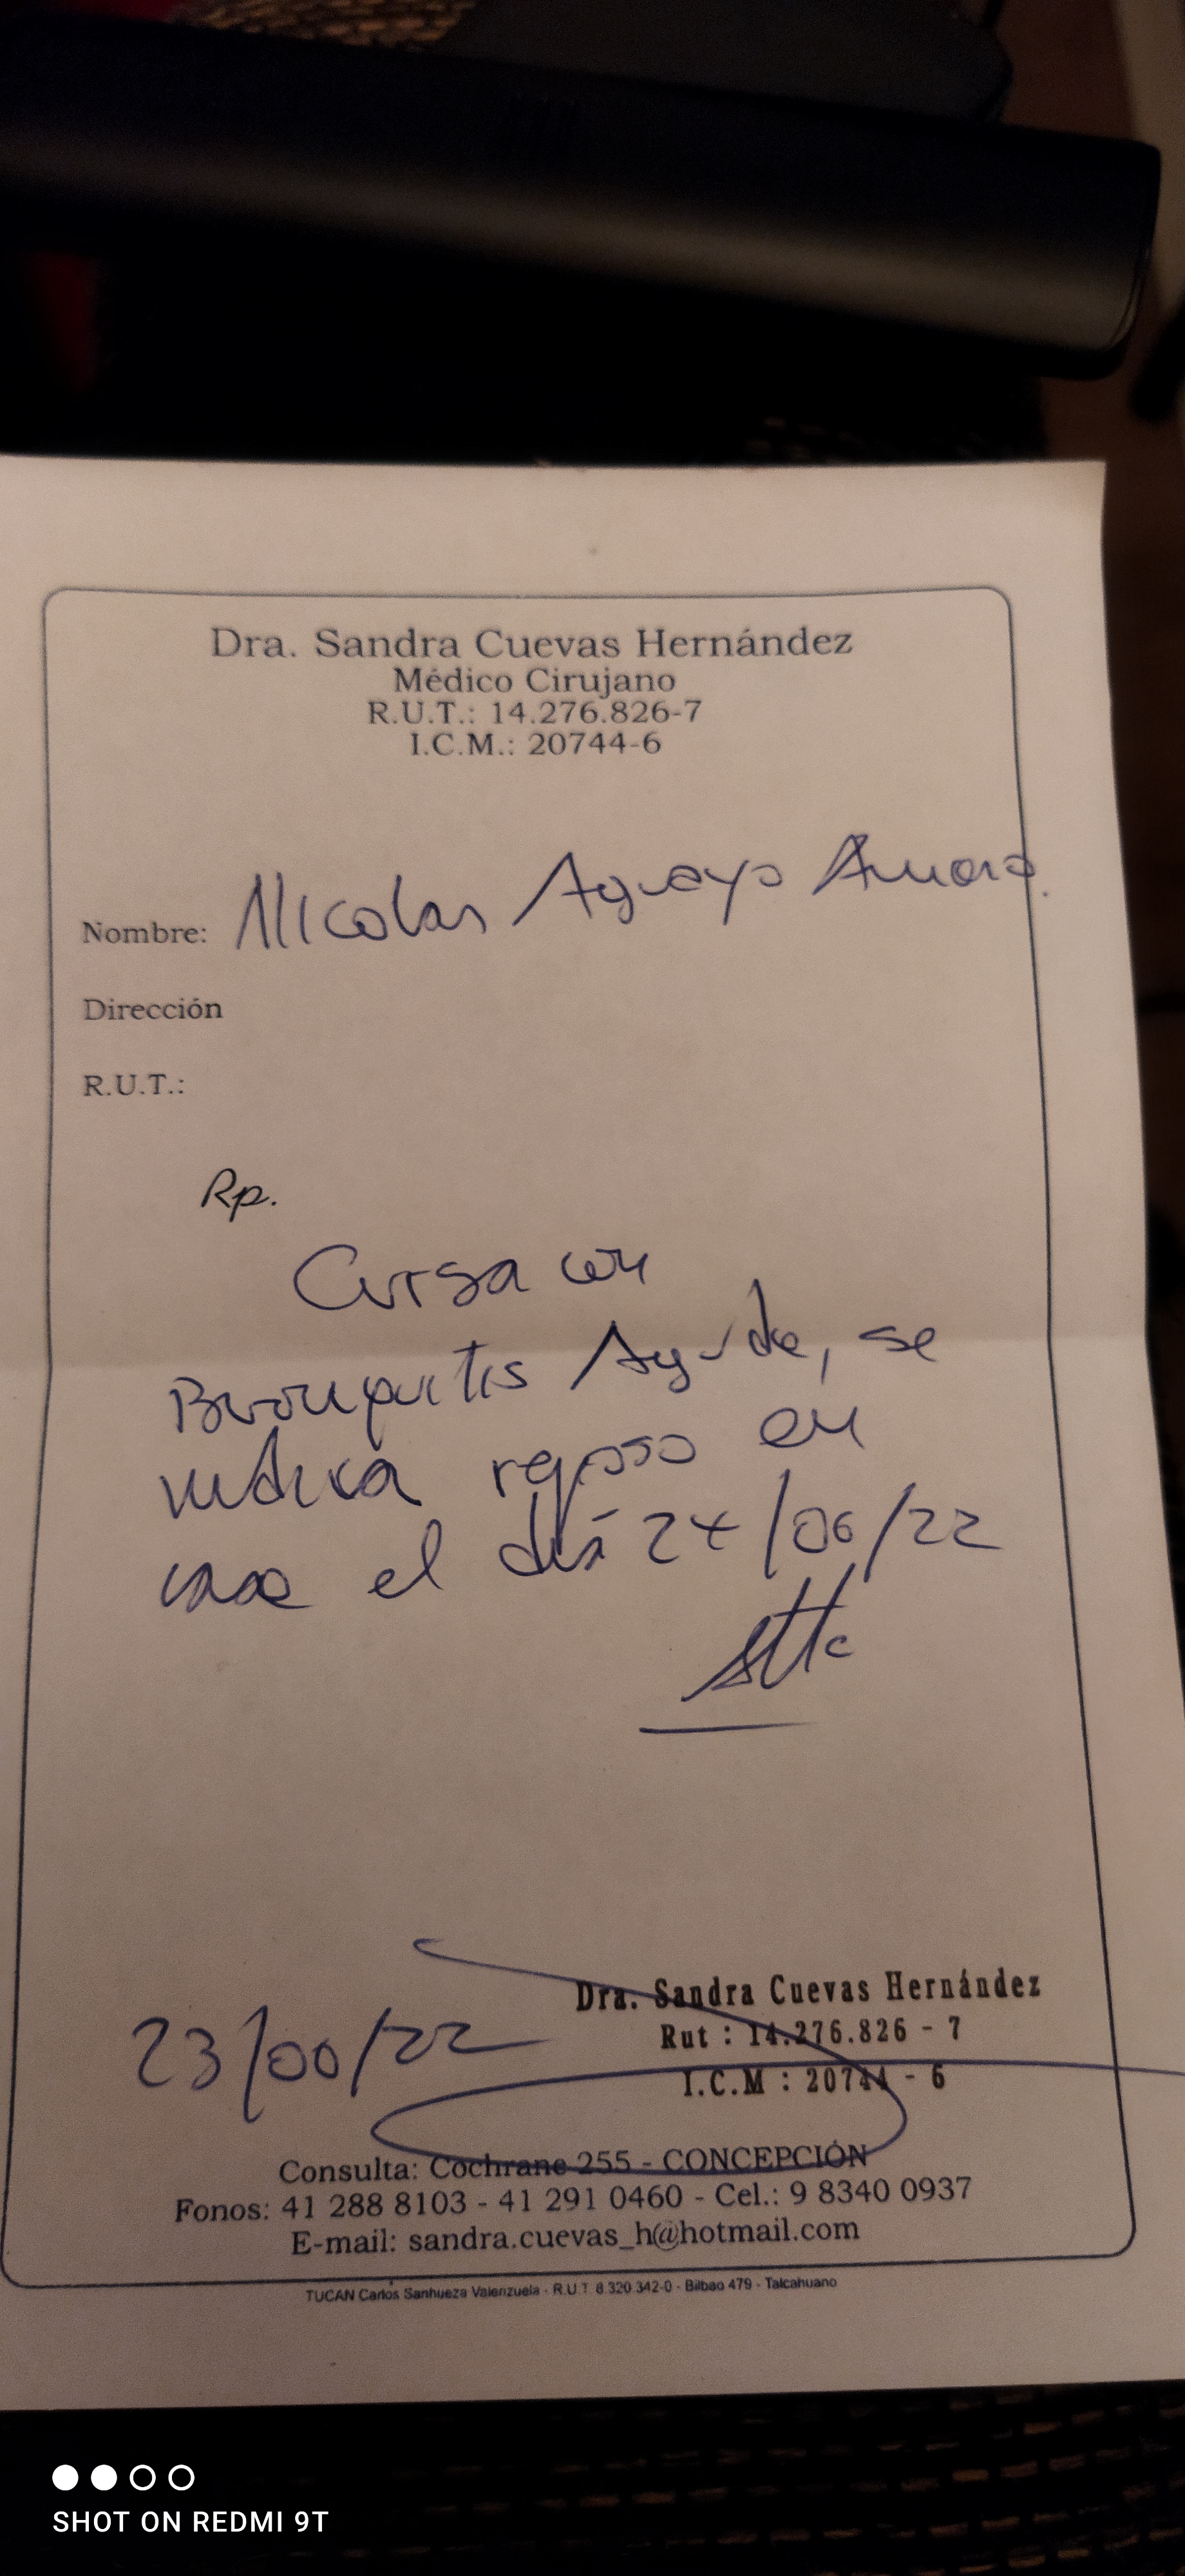 Dra. Sandra Cuevas Hernández
Médico Cirujano
R.U.T.: 14.276.826-7
I.C.M.: 20744-6
Nombre: Nicolas Aguayo
Dirección
R.U.T.:
Rp.
Cursa con
Bronquitis Aguda, se
indica reposo en
casa el día 24/06/22
Atte
23/06/22
Dra. Sandra Cuevas Hernández
Rut : 14.276.826 - 7
I.C.M : 20744 - 6
Consulta: Cochrane 255 - CONCEPCIÓN
Fonos: 41 288 8103 - 41 291 0460 - Cel.: 9 8340 0937
E-mail: sandra.cuevas_h@hotmail.com
TUCAN Carlos Sanhueza Valenzuela - R.U.T 8.320.342-0 - Bilbao 479 - Talcahuano
SHOT ON REDMI 9T